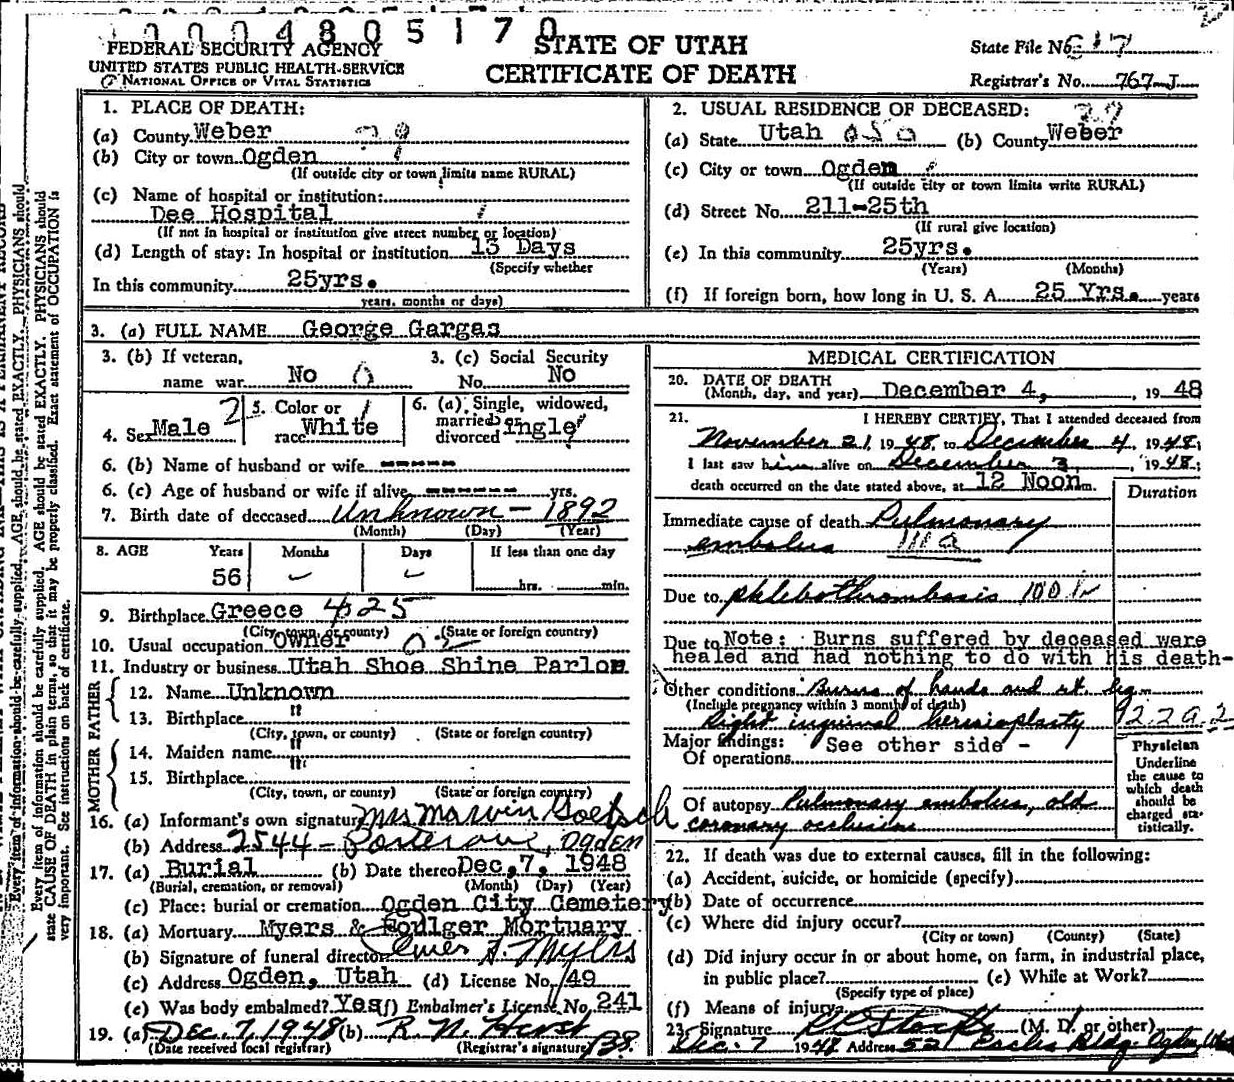 0004805170
FEDERAL SECURITY AGENCY
UNITED STATES PUBLIC HEALTH SERVICE
NATIONAL OFFICE OF VITAL STATISTICS
STATE OF UTAH
CERTIFICATE OF DEATH
State File No.
Registrar's No. 767-J
1. PLACE OF DEATH:
(a) County Weber
(b) City or town Ogden
(If outside city or town limits name RURAL)
(c) Name of hospital or institution:
Dee Hospital
(If not in hospital or institution give street number or location)
(d) Length of stay: In hospital or institution 13 Days
(Specify whether
In this community 25yrs.
years, months or days)
2. USUAL RESIDENCE OF DECEASED:
(a) State Utah (b) County Weber
(c) City or town Ogden
(If outside city or town limits write RURAL)
(d) Street No. 211-25th
(If rural give location)
(e) In this community 25yrs.
(Years) (Months)
(f) If foreign born, how long in U. S. A. 25 Yrs. years
3. (a) FULL NAME George Gargas
3. (b) If veteran, name war No
3. (c) Social Security No. No
4. Sex Male 2
5. Color or race White
6. (a) Single, widowed, married, divorced Single
6. (b) Name of husband or wife -----
6. (c) Age of husband or wife if alive ------ yrs.
7. Birth date of deceased Unknown - 1892
(Month) (Day) (Year)
8. AGE Years Months Days If less than one day
56 hrs. min.
9. Birthplace Greece 425
(City, town, or county) (State or foreign country)
10. Usual occupation Owner
11. Industry or business Utah Shoe Shine Parlor
FATHER
12. Name Unknown
13. Birthplace "
(City, town, or county) (State or foreign country)
MOTHER
14. Maiden name "
15. Birthplace "
(City, town, or county) (State or foreign country)
16. (a) Informant's own signature Mrs Marvin Goetsch
(b) Address 2544 - Ogden
17. (a) Burial (b) Date thereof Dec. 7, 1948
(Burial, cremation, or removal) (Month) (Day) (Year)
(c) Place: burial or cremation Ogden City Cemetery
18. (a) Mortuary Myers & Foulger Mortuary
(b) Signature of funeral director Myers
(c) Address Ogden, Utah (d) License No. 149
(e) Was body embalmed? Yes (f) Embalmer's License No. 241
19. (a) Dec. 7, 1948 (b) R. N. Hirst
(Date received local registrar) (Registrar's signature)
MEDICAL CERTIFICATION
20. DATE OF DEATH
(Month, day, and year) December 4, , 19 48
21. I HEREBY CERTIFY, That I attended deceased from
November 21, 1948, to December 4, 1948;
I last saw him alive on December 3, , 1948;
death occurred on the date stated above, at 12 Noon m.
Duration
Immediate cause of death Pulmonary
embolus 111a
Due to phlebothrombosis
Due to Note: Burns suffered by deceased were
healed and had nothing to do with his death-
Other conditions Burns of hands and rt. leg
(Include pregnancy within 3 months of death)
Right inguinal hernioplasty
Major findings: See other side -
Of operations
Of autopsy Pulmonary embolus, old
coronary occlusion
Physician
Underline
the cause to
which death
should be
charged sta-
tistically.
22. If death was due to external causes, fill in the following:
(a) Accident, suicide, or homicide (specify)
(b) Date of occurrence
(c) Where did injury occur?
(City or town) (County) (State)
(d) Did injury occur in or about home, on farm, in industrial place,
in public place? (e) While at Work?
(Specify type of place)
(f) Means of injury
23. Signature (M. D. or other)
Dec. 7 1948 Address Eccles Bldg. Ogden, Utah
Every item of information should be carefully supplied. AGE should be stated EXACTLY. PHYSICIANS should
state CAUSE OF DEATH in plain terms, so that it may be properly classified. Exact statement of OCCUPATION is
very important. See instructions on back of certificate.